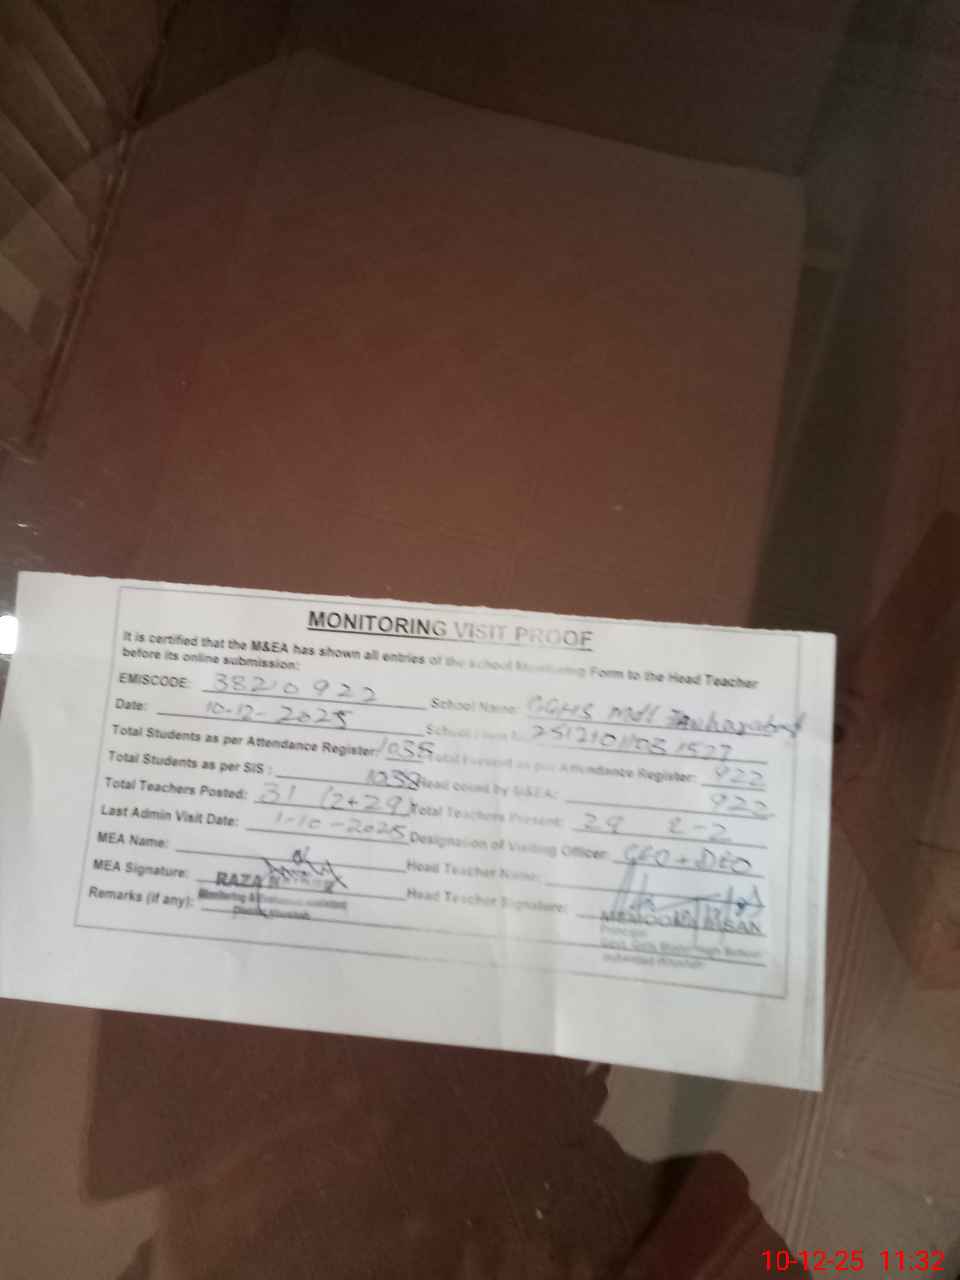 MONITORING VISIT PROOF
It is certified that the M&EA has shown all entries of the school Monitoring Form to the Head Teacher
before its online submission:
EMISCODE: 38210922 School Name: GGHS Mdl Jauharabad
Date: 10-12-2025 School
Total Students as per Attendance Register: 1038 Total Present as per Attendance Register: 922
Total Students as per SIS: 1038 Head count by M&EA: 922
Total Teachers Posted: 31 (2+29) Total Teachers Present: 29 2-2
Last Admin Visit Date: 1-10-2025 Designation of Visiting Officer: CEO + DEO
MEA Name: Head Teacher Name:
MEA Signature: RAZA Head Teacher Signature:
Remarks (if any):
Principal
10-12-25 11:32